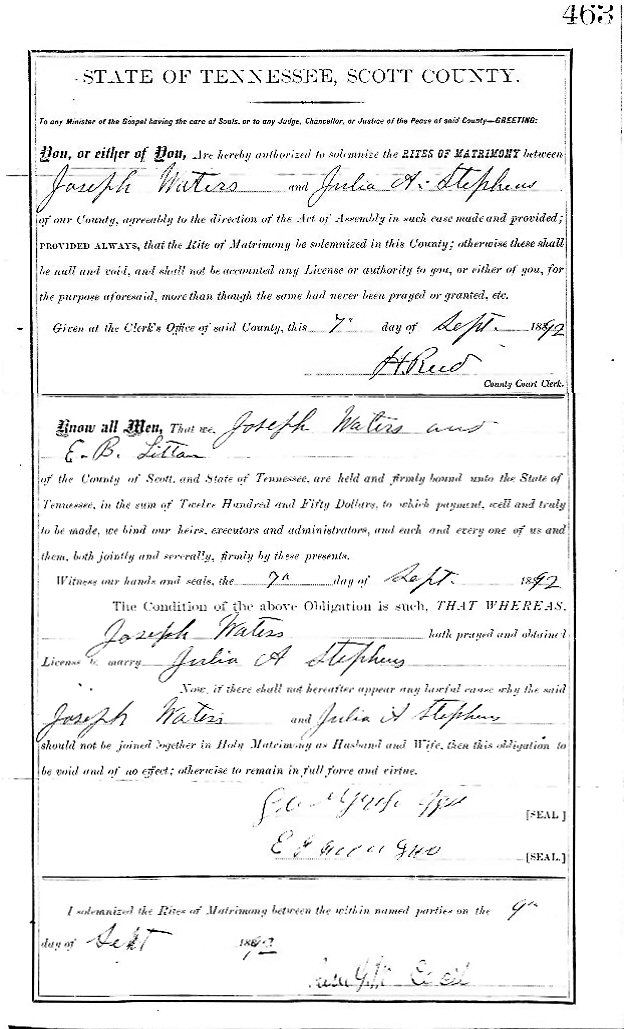 463
STATE OF TENNESSEE, SCOTT COUNTY.
To any Minister of the Gospel having the care of Souls, or to any Judge, Chancellor, or Justice of the Peace of said County—GREETING:
You, or either of You, Are hereby authorized to solemnize the RITES OF MATRIMONY between
Joseph Waters and Julia A. Stephens
of our County, agreeably to the direction of the Act of Assembly in such case made and provided;
PROVIDED ALWAYS, that the Rite of Matrimony be solemnized in this County; otherwise these shall
be null and void, and shall not be accounted any License or authority to you, or either of you, for
the purpose aforesaid, more than though the same had never been prayed or granted, etc.
Given at the Clerk's Office of said County, this 7" day of Sept. 1892
H. Reed
County Court Clerk.
Know all Men, That we, Joseph Waters and
E. B. Litton
of the County of Scott, and State of Tennessee, are held and firmly bound unto the State of
Tennessee, in the sum of Twelve Hundred and Fifty Dollars, to which payment, well and truly
to be made, we bind our heirs, executors and administrators, and each and every one of us and
them, both jointly and severally, firmly by these presents.
Witness our hands and seals, the 7" day of Sept. 1892
The Condition of the above Obligation is such, THAT WHEREAS,
Joseph Waters hath prayed and obtained
License to marry Julia A Stephens
Now, if there shall not hereafter appear any lawful cause why the said
Joseph Waters and Julia A Stephens
should not be joined together in Holy Matrimony as Husband and Wife, then this obligation to
be void and of no effect; otherwise to remain in full force and virtue.
[SEAL]
[SEAL.]
I solemnized the Rites of Matrimony between the within named parties on the 9"
day of Sept 1892
Cecil